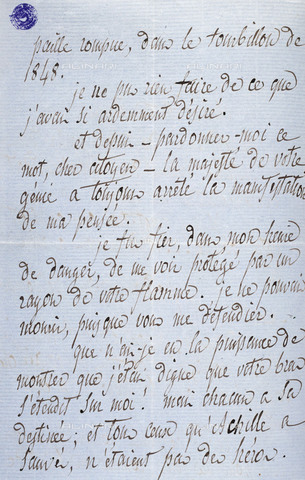 paille rompue, dans le tourbillon de
1848.
je ne pus rien faire de ce que
j'avais si ardemment désiré.
et depuis – pardonnez-moi ce
mot, cher citoyen – la majesté de votre
génie a toujours arrêté la manifestation
de ma pensée.
je fus fier, dans mon heure
de danger, de me voir protégé par un
rayon de votre flamme. je ne pouvais
mourir, puisque vous me défendiez.
que n'ai-je eu la puissance de
montrer que j'étais digne que votre bras
s'étendit sur moi! mais chacun a sa
destinée; et tous ceux qu'Achille a
sauvés, n'étaient pas des héros.